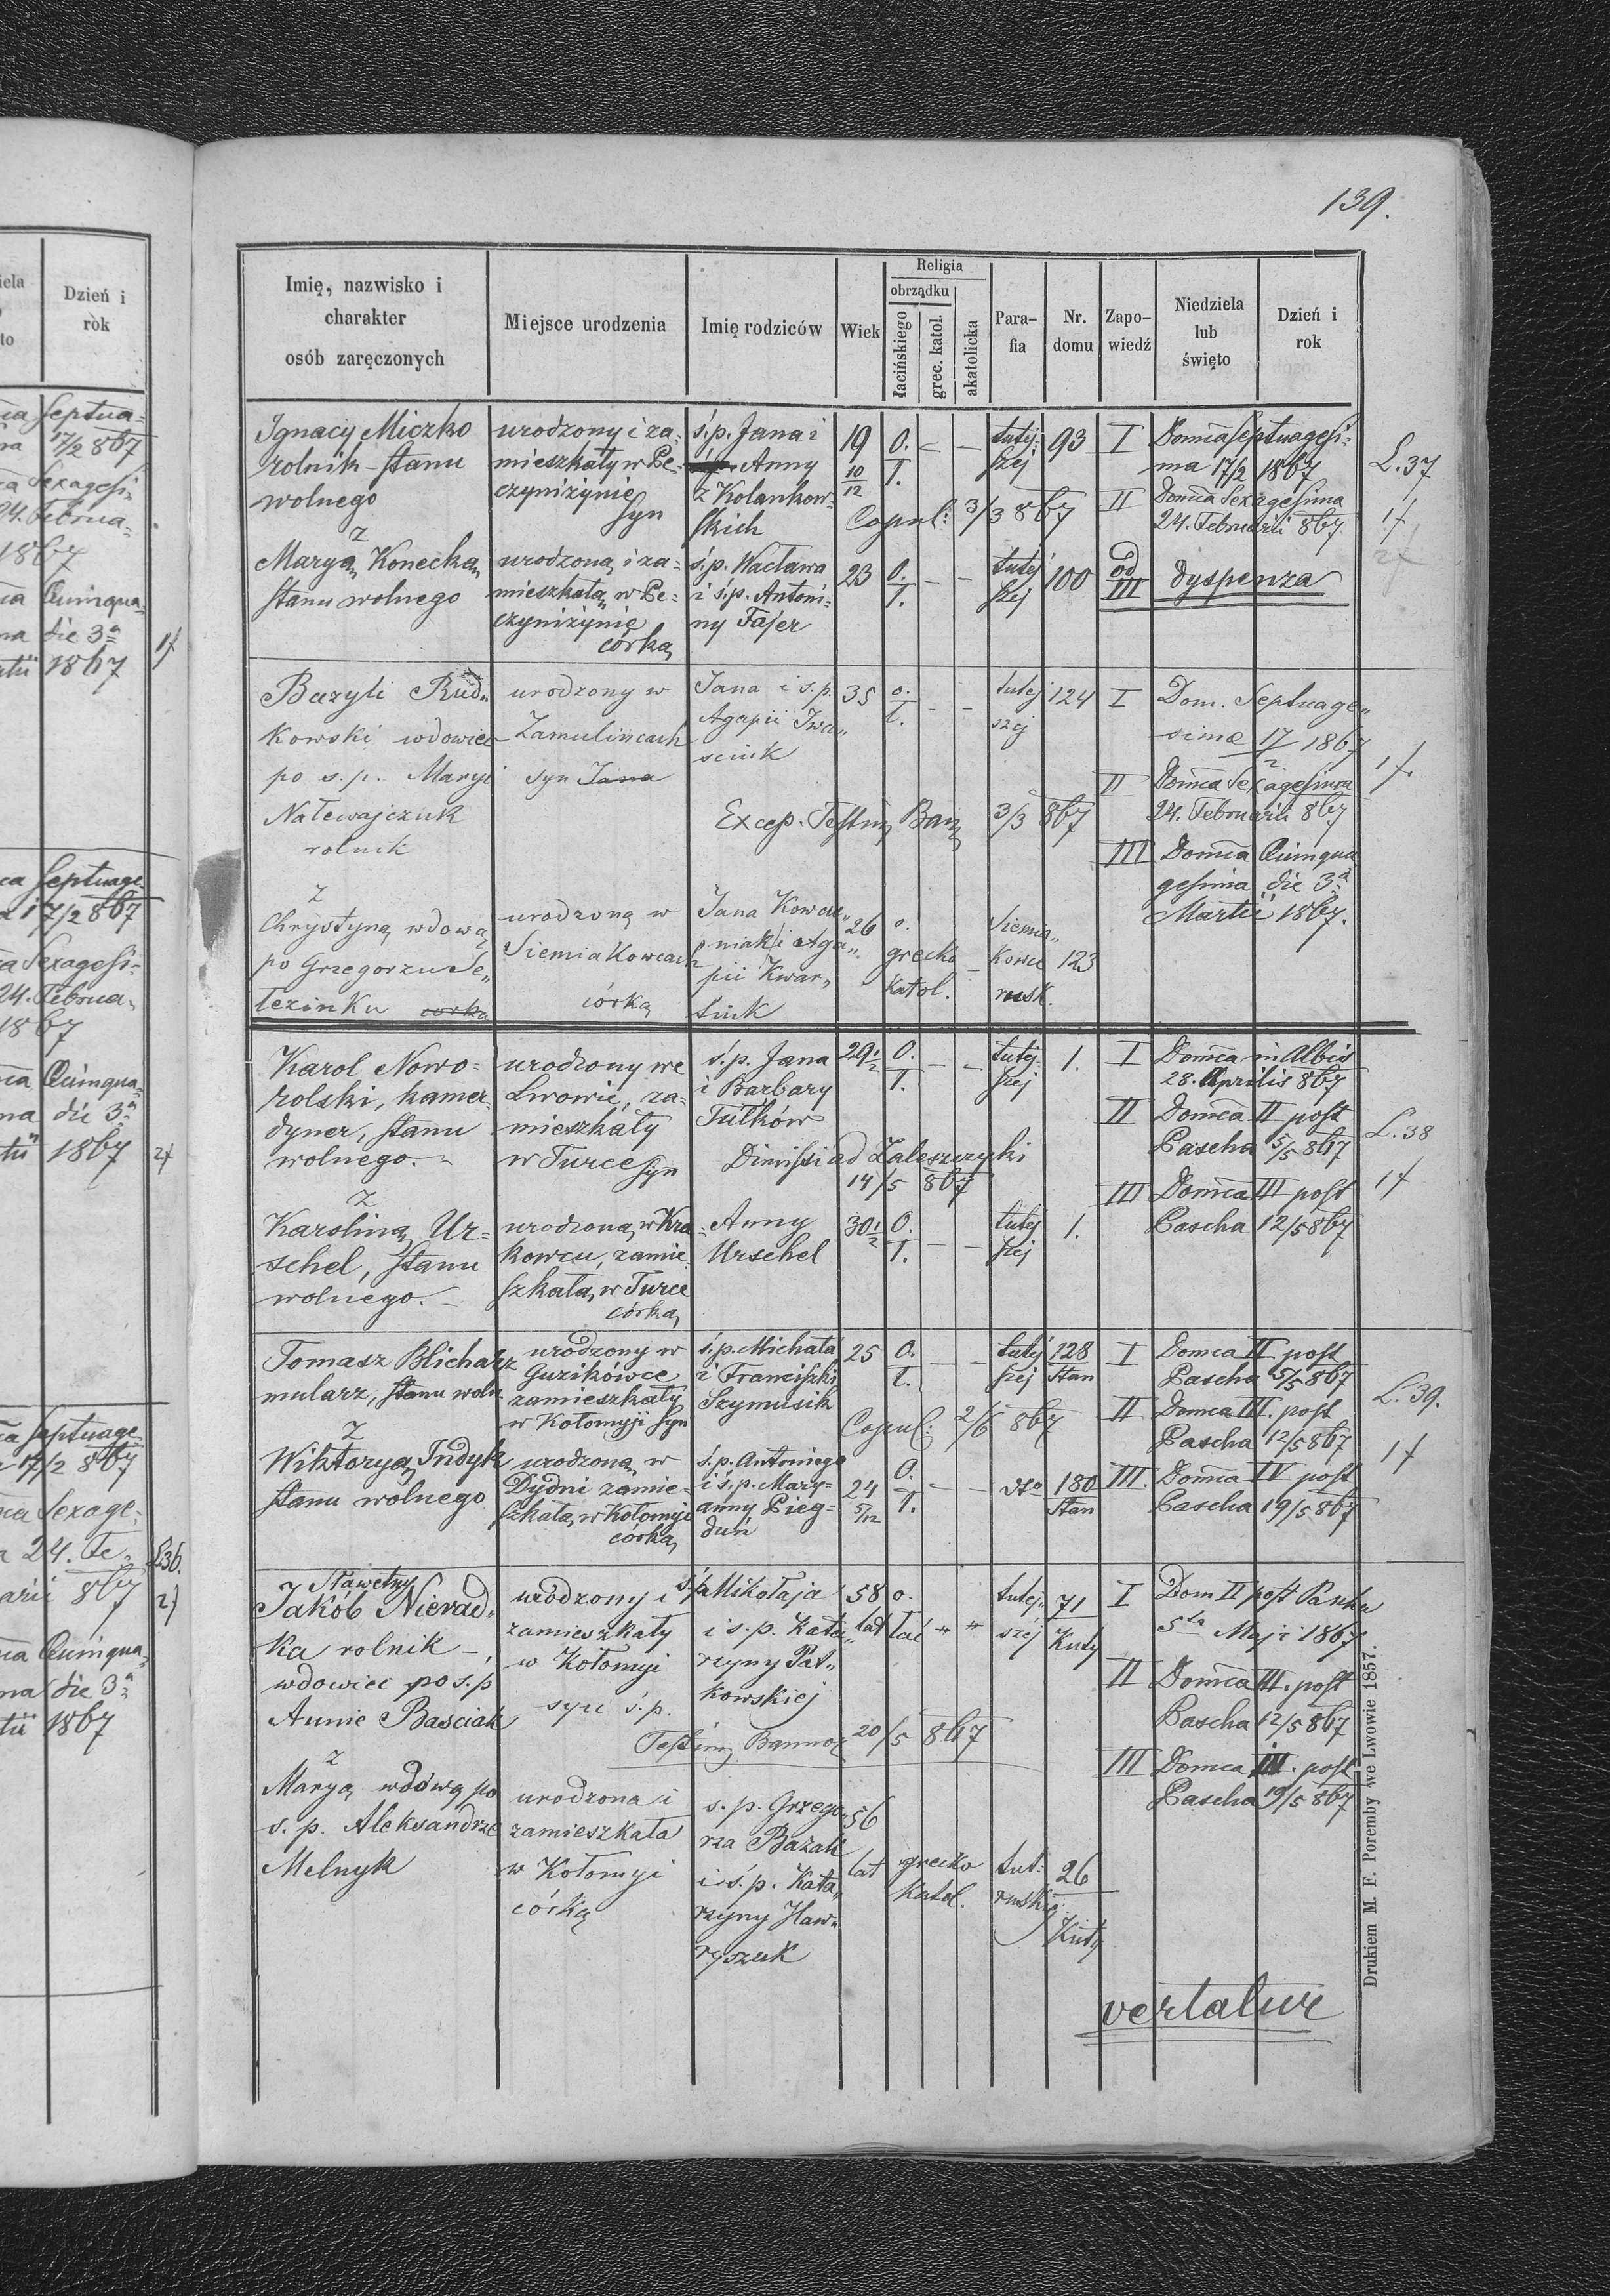 139.
Imię, nazwisko i
charakter
osób zaręczonych
Miejsce urodzenia
Imię rodziców
Wiek
Religia
obrządku
łacińskiego
grec. katol.
akatolicka
Para-
fia
Nr.
domu
Zapo-
wiedź
Niedziela
lub
święto
Dzień i
rok
Ignacy Miczko
rolnik - stanu
wolnego
z
Maryą Konecką
stanu wolnego
urodzony i za-
mieszkały w Pe-
czyniżynie
syn
urodzoną i za-
mieszkałą w Pe-
czyniżynie
córką
ś.p. Jana i
Anny
z Kolankow-
skich
ś.p. Wacława
i ś.p. Antoni-
ny Fajer
19 10/12
Copul: 3/3 867
23
o. ł. – –
o. ł. – –
tutej
szej
93
tutej
szej
100
I Domca Septuagesi-
ma 17/2 1867
II Domca Sexagesima
24. Februarii 867
od III dyspenza
L. 37
1f
2f
Bazyli Rud„
kowski wdowiec
po s.p. Maryi
Nalewajczuk
rolnik
z
Chrystyną wdową
po Grzegorzu Se„
lezinku córką
urodzony w
Zamulincach
syn Jana
urodzoną w
Siemiakowcach
córką
Jana i s.p.
Agapii Iwa„
sciuk
Excep. Testim Ban 3/3 867
Jana Kowal„
niak i Aga„
pii Kwar„
ciuk
35 o. ł. – –
26 o.
grecko
katol.
tutej
szej
124
Siemia„
kowce
rusk.
123
I Dom. Septuage„
sime 17/2 1867
II Domca Sexagesima
24. Februarii 867
III Domca Quinqua
gesima die 3a
Martii 1867.
1f.
Karol Nowo-
rolski, kamer-
dyner, stanu
wolnego. -
z
Karoliną Ur-
schel, stanu
wolnego. -
urodzony we
Lwowie, za-
mieszkały
w Turce syn
urodzoną w Kra-
kowcu, zamie-
szkałą w Turce
córką
ś.p. Jana
i Barbary
Tutków
Dimissi ad Zaleszczyki
14/5 867
Anny
Urschel
29 1/2 o. ł. – –
30 1/2 o. ł. – –
tutej
szej
1.
tutej
szej
1.
I Domca in Albis
28. Aprilis 867
II Domca II post
Pascha 5/5 867
III Domca III post
Pascha 12/5 867
L. 38
1f
Tomasz Blicharz
mularz, stanu woln.
z
Wiktoryą Indyk
stanu wolnego
urodzony w
Guzikówce
zamieszkały
w Kołomyji syn
urodzoną w
Dydni zamie-
szkałą w Kołomyji
córką
ś.p. Michała
i Franciszki
Szymusik
Copul: 2/6 867
s.p. Antoniego
i ś.p. Mary-
anny Pieg-
duń
25 o. ł. – –
24 5/12 o. ł. – –
tutej
szej
128
Stan
dto 180
Stan
I Domca II post
Pascha 5/5 867
II Domca III. post
Pascha 12/5 867
III. Domca IV post
Pascha 19/5 867
L. 39.
1f
Sławetny
Jakób Nierad„
ka rolnik -
wdowiec po s.p
Annie Basciak
z
Maryą wdową po
s. p. Aleksandrze
Melnyk
urodzony i
zamieszkały
w Kołomyi
syn ś.p.
urodzona i
zamieszkała
w Kołomyi
córką
ś.p. Mikołaja
i s.p. Kata„
rzyny Pat„
kowskiej
Testim Bannor 20/5 867
s. p. Grzego„
rza Bazak
i ś.p. Kata„
rzyny Haw„
ryszuk
58
lat
o.
łać " "
56
lat
grecko
katol.
tutej„
szej
71
Kuty
tut:
ruskij
26
Kuty
I Dom II post Pasha
5ta Maji 1867
II Domca III. post
Pascha 12/5 867
III Domca post
Pascha 19/5 867
vertatur
Drukiem M. F. Poremby we Lwowie 1857.
iela
to
Dzień i
rok
Septua-
17/2 867
Sexagesi-
24. Februa-
1867
Quinqua-
die 3a
1867
1f
Septuage-
17/2 867
Sexagesi-
24. Februa-
1867
Quinqua-
die 3a
1867
2f
Septuage-
17/2 867
Sexage-
24. Fe-
867
L36.
2f
Quinqua-
die 3a
1867